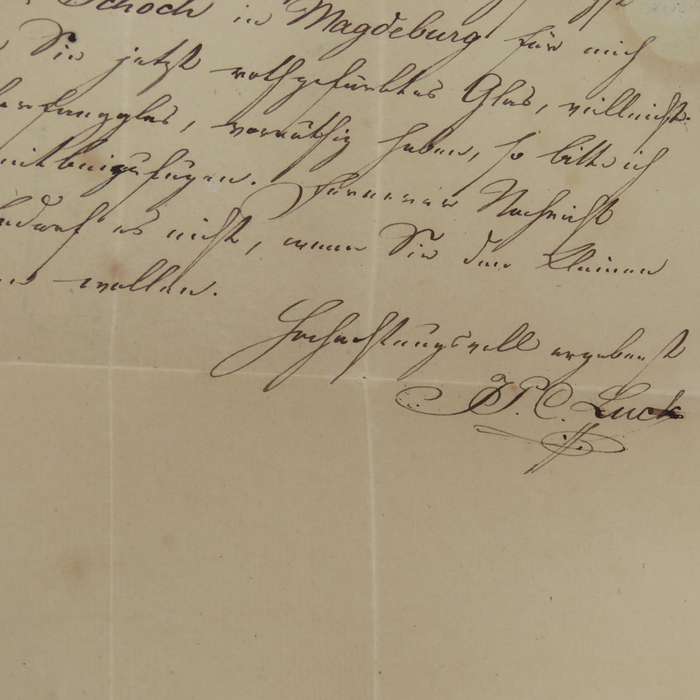 Schoch in Magdeburg für mich
Sie jetzt rothgefärbtes Glas, vielleicht
, vorräthig haben, so bitte ich
mit beizufügen. Fernerer Nachricht
bedarf es nicht, wenn Sie den kleinen
wollen.
Hochachtungsvoll ergebenst
P. C. Luck